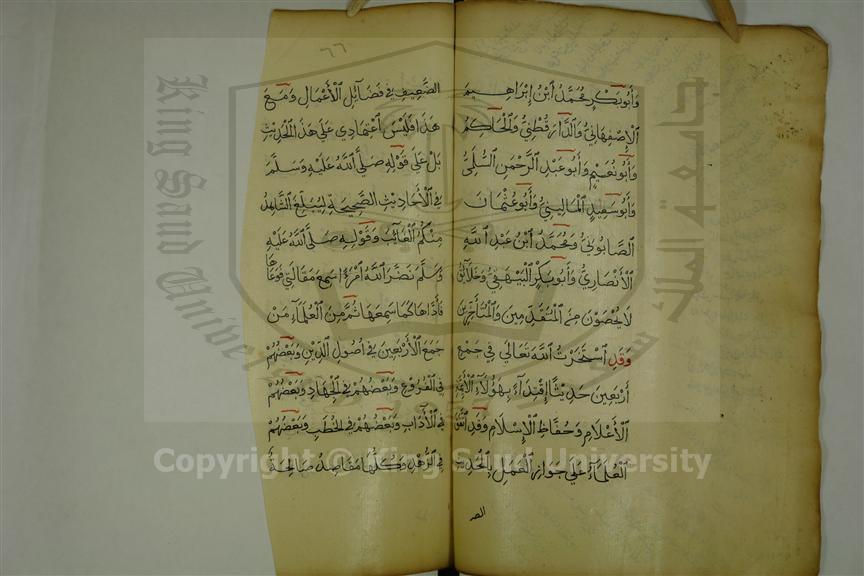 وَأَبُو بَكْرٍ مُحَمَّدُ ابْنُ إِبْرَاهِيمَ
الْإِصْفَهَانِيُّ وَالدَّارَقُطْنِيُّ وَالْحَاكِمُ
وَأَبُو نُعَيْمٍ وَأَبُو عَبْدِ الرَّحْمٰنِ السُّلَمِيُّ
وَأَبُو سَعِيدٍ الْمَالِينِيُّ وَأَبُو عُثْمَانَ
الصَّابُونِيُّ وَمُحَمَّدُ ابْنُ عَبْدِ اللَّهِ
الْأَنْصَارِيُّ وَأَبُو بَكْرٍ الْبَيْهَقِيُّ وَخَلَائِقُ
لَا يُحْصَوْنَ مِنَ الْمُتَقَدِّمِينَ وَالْمُتَأَخِّرِينَ
وَقَدِ اسْتَخَرْتُ اللَّهَ تَعَالَى فِي جَمْعِ
أَرْبَعِينَ حَدِيثًا إِقْتِدَاءً بِهَؤُلَاءِ الْأَئِمَّةِ
الْأَعْلَامِ وَحُفَّاظِ الْإِسْلَامِ وَقَدِ اتَّفَقَ
الْعُلَمَاءُ عَلَى جَوَازِ الْعَمَلِ بِالْحَدِيثِ
الضـ
٦٦
الضَّعِيفِ فِي فَضَائِلِ الْأَعْمَالِ وَمَعَ
هَذَا فَلَيْسَ اعْتِمَادِي عَلَى هَذَا الْحَدِيثِ
بَلْ عَلَى قَوْلِهِ صَلَّى اللَّهُ عَلَيْهِ وَسَلَّمَ
فِي الْأَحَادِيثِ الصَّحِيحَةِ لِيُبَلِّغَ الشَّاهِدُ
مِنْكُمُ الْغَائِبَ وَقَوْلِهِ صَلَّى اللَّهُ عَلَيْهِ
وَسَلَّمَ نَضَّرَ اللَّهُ امْرُءًا سَمِعَ مَقَالَتِي فَوَعَاهَا
فَأَدَّاهَا كَمَا سَمِعَهَا ثُمَّ مِنَ الْعُلَمَاءِ مَنْ
جَمَعَ الْأَرْبَعِينَ فِي أُصُولِ الدِّينِ وَبَعْضُهُمْ
فِي الْفُرُوعِ وَبَعْضُهُمْ فِي الْجِهَادِ وَبَعْضُهُمْ
فِي الْآدَابِ وَبَعْضُهُمْ فِي الْخُطَبِ وَبَعْضُهُمْ
فِي الزُّهْدِ وَكُلُّهَا مَقَاصِدُ صَالِحَةٌ
جامعة الملك سعود
King Saud University
Copyright © King Saud University